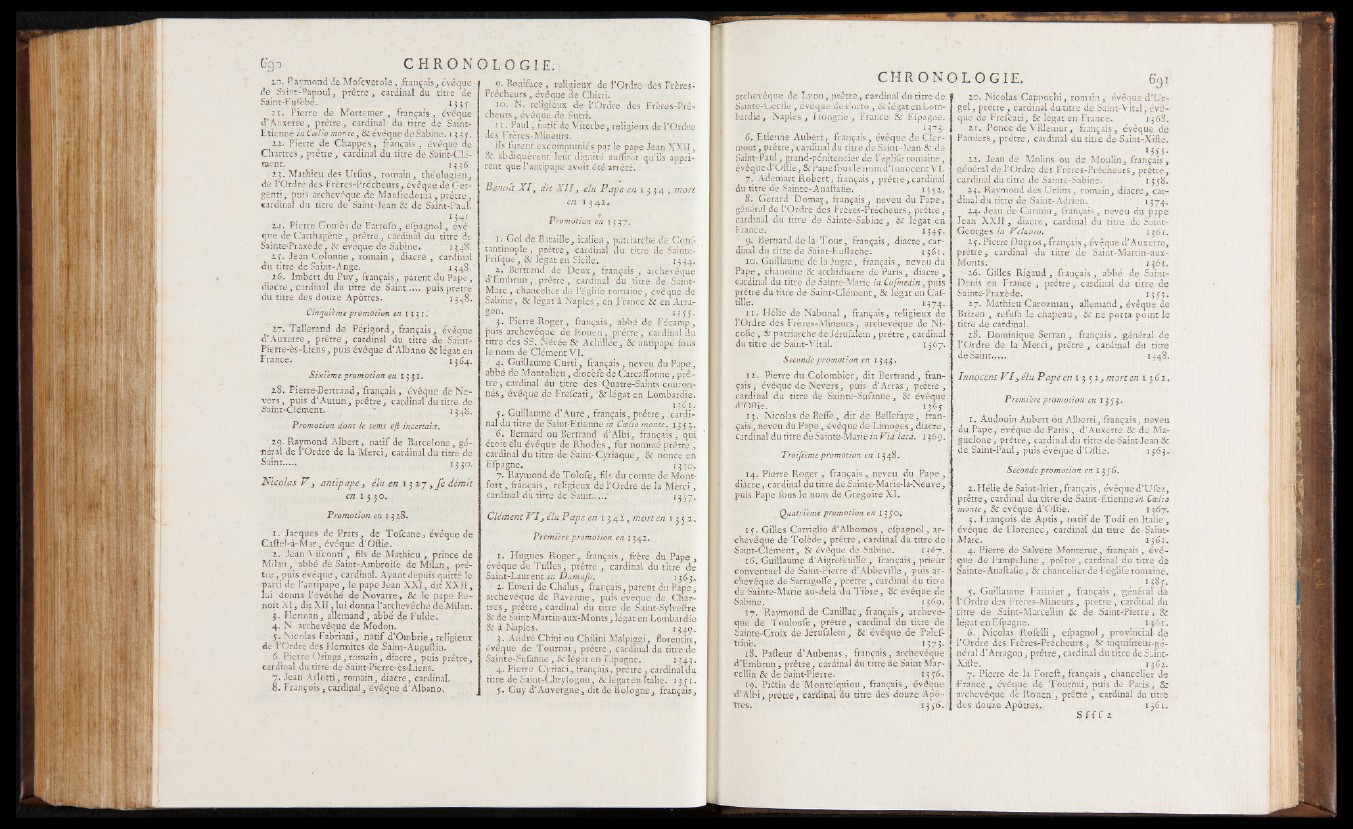 690 CHRONOLOGIE.
20. Raymond de Mosteverole, français, évêque
de Saint-Papoul, prêtre, cardinal du titre de
Saint-Eusèbe. 1335.
21. Pierre de Mortemer, français, évêque
d'Auxerre, prêtre, cardinal du titre de Saint-
Etienne in Cœlio monte, & évêque de Sabine. 1335.
22. Pierre de Chappes, français, évêque de
Chartres, prêtre, cardinal du titre de Saint-Clé-
ment. 1336.
23. Mathieu des Ursins, romain, théologien,
de l'Ordre des Frères-Prêcheurs, évêque de Ger-
genti, puis archevêque de Manfredonia, prêtre,
cardinal du titre de Saint-Jean & de Saint-Paul.
1341
24. Pierre Gomès de Barroso, espagnol, évê-
que de Carthagène, prêtre, cardinal du titre de
Sainte-Praxède, & évêque de Sabine. 1348.
25. Jean Colonne, romain, diacre, cardinal
du titre de Saint-Ange. 1348.
26. Imbert du Puy, français, parent du Pape,
diacre, cardinal du titre de Saint..... puis prêtre
du titre des douze Apôtres. 1348.
Cinquième promotion en 1331.
27. Tallerand de Périgord, français, évêque
d'Auxerre, prêtre, cardinal du titre de Saint-
Pierre-ès-Liens, puis évêque d'Albano & légat en
France. 1364.
Sixième promotion en 1331.
28. Pierre-Bertrand, français, évêque de Ne-
vers, puis d'Autun, prêtre, cardinal du titre de
Saint-Clément. 1348.
Promotion dont le tems est incertain.
29. Raymond Albert, natif de Barcelone, gé-
néral de l'Ordre de la Merci, cardinal du titre de
Saint..... 1330.
Nicolas V, antipape, élu en 1327, se démit
en 1330.
Promotion en 1328.
1. Jacques de Prats, de Toscane, évêque de
Castel-à-Mar, évêque d'Ostie.
2. Jean Visconti, fils de Mathieu, prince de
Milan, abbé de Saint-Ambroise de Milan, prê-
tre, puis évêque, cardinal. Ayant depuis quitté le
parti de l'antipape, le pape Jean XXI, dit XXII,
lui donna l'évêché de Novarre, & le pape Be-
noît XI, dit XII, lui donna l'archevêché de Milan.
3. Herman, allemand, abbé de Fulde.
4. N. archevêque de Modon.
5. Nicolas Fabriani, natif d'Ombrie, religieux
de l'Ordre des Hermites de Saint-Augustin.
6. Pierre Oringa, romain, diacre, puis prêtre,
cardinal du titre de Saint-Pierre-ès-Liens.
7. Jean Arlotti, romain, diacre, cardinal.
8. François, cardinal, évêque d'Albano.
9. Boniface, religieux de l'Ordre des Frères-
Prêcheurs, évêque de Chitri.
10. N. religieux de l'Ordre des Frères-Prê-
cheurs, évêque de Sutri.
11. Paul, natif de Viterbe, religieux de l'Ordre
des Frères-Mineurs.
Ils furent excommuniés par le pape Jean XXII,
& abdiquèrent leur dignité aussitôt qu'ils appri-
rent que l'antipape avoit été arrêté.
Benoît XI, dit XII, élu Pape en 1334, mort
en 1342.
Promotion en 1337.
1. Gol de Bataille, italien, patriarche de Cons-
tantinople, prêtre, cardinal du titre de Sainte-
Prisque, & légat en Sicile. 1334.
2. Bertrand de Deux, français, archevêque
d'Embrun, prêtre, cardinal du titre de Saint-
Marc, chancelier de l'église romaine, évêque de
Sabine, & légat à Naples, en France & en Arra-
gon. 1355.
3. Pierre Roger, français, abbé de Fécamp,
puis archevêque de Rouen, prêtre, cardinal du
titre des SS. Nérée & Achillée, & antipape sous
le nom de Clément VI.
4. Guillaume Curti, français, neveu du Pape,
abbé de Montolieu, diocèse de Carcassonne, prê-
tre, cardinal du titre des Quatre-Saints couron-
nés, évêque de Frescati, & légat en Lombardie.
1361.
5. Guillaume d'Aure, français, prêtre, cardi-
nal du titre de Saint-Etienne in Cœlio monte. 1353.
6. Bernard ou Bertrand d'Albi, français, qui
étoit élu évêque de Rhodès, fut nommé prêtre,
cardinal du titre de Saint-Cyriaque, & nonce en
Espagne. 1350.
7. Raymond de Tolose, fils du comte de Mont-
fort, français, religieux de l'Ordre de la Merci,
cardinal du titre de Saint..... 1337.
Clément VI, élu Pape en 1342, mort en 1352.
Première promotion en 1342.
1. Hugues Roger, français, frère du Pape,
évêque de Tulles, prêtre, cardinal du titre de
Saint-Laurent in Damaso. 1363.
2. Emeri de Chalus, français, parent du Pape,
archevêque de Ravenne, puis évêque de Char-
tres, prêtre, cardinal du titre de Saint-Sylvestre
& de Saint-Martin-aux-Monts, légat en Lombardie
& à Naples. 1349.
3. André Chini ou Chilini Malpiggi, florentin,
évêque de Tournai, prêtre, cardinal du titre de
Sainte-Susanne, & légat en Espagne. 1343.
4. Pierre Cyriaci, français, prêtre, cardinal du
titre de Saint-Chrysogon, & légat en Italie. 1351.
5. Guy d'Auvergne, dit de Bologne, français,
CHRONOLOGIE. 691
archevêque de Lyon, prêtre, cardinal du titre de
Sainte-Cécile, évêque de Porto, & légat en Lom-
bardie, Naples, Hongrie, France & Espagne.
1373.
6. Etienne Aubert, français, évêque de Cler-
mont, prêtre, cardinal du titre de Saint-Jean & de
Saint-Paul, grand-pénitencier de l'église romaine,
évêque d'Ostie, & Pape sous le nom d'Innocent VI.
7. Ademart Robert, français, prêtre, cardinal
du titre de Sainte-Anastasie. 1352.
8. Gérard Domar, français, neveu du Pape,
général de l'Ordre des Frères-Prêcheurs, prêtre,
cardinal du titre de Sainte-Sabine, & légat en
France. 1345.
9. Bernard de la Tour, français, diacre, car-
dinal du titre de Saint-Eustache. 1361.
10. Guillaume de la Jugie, français, neveu du
Pape, chanoine & archidiacre de Paris, diacre,
cardinal du titre de Sainte-Marie in Cosmedin, puis
prêtre du titre de Saint-Clément, & légat en Cas-
tille. 1374.
11. Hélie de Nabunal, français, religieux de
l'Ordre des Frères-Mineurs, archevêque de Ni-
cosie, & patriarche de Jérusalem, prêtre, cardinal
du titre de Saint-Vital. 1367.
Seconde promotion en 1343.
12. Pierre du Colombier, dit Bertrand, fran-
çais, évêque de Nevers, puis d'Arras, prêtre,
cardinal du titre de Sainte-Susanne, & évêque
d'Ostie. 1365
13. Nicolas de Besse, dit de Bellefaye, fran-
çais, neveu du Pape, évêque de Limoges, diacre,
cardinal du titre de Sainte-Marie in Viâ latâ. 1369.
Troisième promotion en 1348.
14. Pierre Roger, français, neveu du Pape,
diacre, cardinal du titre de Sainte-Marie-la-Neuve,
puis Pape sous le nom de Grégoire XI.
Quatrième promotion en 1350.
15. Gilles Carriglio d'Albornos, espagnol, ar-
chevêque de Tolède, prêtre, cardinal du titre de
Saint-Clément, & évêque de Sabine. 1367.
16. Guillaume d'Aigrefeuille, français, prieur
conventuel de Saint-Pierre d'Abbeville, puis ar-
chevêque de Sarragosse, prêtre, cardinal du titre
de Sainte-Marie au-delà du Tibre, & évêque de
Sabine. 1369.
17. Raymond de Canillac, français, archevê-
que de Toulouse, prêtre, cardinal du titre de
Sainte-Croix de Jérusalem, & évêque de Palest-
trine. 1373.
18. Pasteur d'Aubenas, français, archevêque
d'Embrun, prêtre, cardinal du titre de Saint-Mar-
cellin & de Saint-Pierre. 1356.
19. Pictin de Montesquiou, français, évêque
d'Albi, prêtre, cardinal du titre des douze Apô-
tres. 1356.
20. Nicolas Cappochi, romain, évêque d'Ur-
gel, prêtre, cardinal du titre de Saint-Vital, évê-
que de Frescati, & légat en France. 1368.
21. Ponce de Villemur, français, évêque de
Pamiers, prêtre, cardinal du titre de Saint-Xiste.
1355.
22. Jean de Molins ou de Moulin, français,
général de l'Ordre des Frères-Prêcheurs, prêtre,
cardinal du titre de Sainte-Sabine. 1358.
23. Raymond des Ursins, romain, diacre, car-
dinal du titre de Saint-Adrien. 1374.
24. Jean de Carmin, français, neveu du pape
Jean XXII, diacre, cardinal du titre de Saint-
Georges in Velabro. 1361.
25. Pierre Dugros, français, évêque d'Auxerre,
prêtre, cardinal du titre de Saint-Martin-aux-
Monts. 1361.
26. Gilles Rigaud, français, abbé de Saint-
Denis en France, prêtre, cardinal du titre de
Sainte-Praxède. 1353.
27. Mathieu Carozman, allemand, évêque de
Brizen, refusa le chapeau, & ne porta point le
titre de cardinal.
28. Dominique Serran, français, général de
l'Ordre de la Merci, prêtre, cardinal du titre
de Saint..... 1348.
Innocent VI, élu Pape en 1352, mort en 1362.
Première promotion en 1353.
1. Audouin Aubert ou Alberti, français, neveu
du Pape, évêque de Paris, d'Auxerre & de Ma-
guelone, prêtre, cardinal du titre de Saint-Jean &
de Saint-Paul, puis évêque d'Ostie. 1363.
Seconde promotion en 1356.
2. Hélie de Saint-Irier, français, évêque d'Usez,
prêtre, cardinal du titre de Saint-Etienne in Cœlio
monte, & évêque d'Ostie. 1367.
3. François de Aptis, natif de Todi en Italie,
évêque de Florence, cardinal du titre de Saint-
Marc. 1361.
4. Pierre de Salvete Monteruc, français, évê-
que de Pampelune, prêtre, cardinal du titre de
Sainte-Anastasie, & chancelier de l'église romaine.
1385.
5. Guillaume Farinier, français, général de
l'Ordre des Frères-Mineurs, prêtre, cardinal du
titre de Saint-Marcellin & de Saint-Pierre, &
légat en Espagne. 1361.
6. Nicolas Roselli, espagnol, provincial de
l'Ordre des Frères-Prêcheurs, & inquisiteur-gé-
néral d'Arragon, prêtre, cardinal du titre de Saint-
Xiste. 1362.
7. Pierre de la Forest, français, chancelier de
France, évêque de Tournai, puis de Paris, &
archevêque de Rouen, prêtre, cardinal du titre
des douze Apôtres. 1361.
Sfff 2